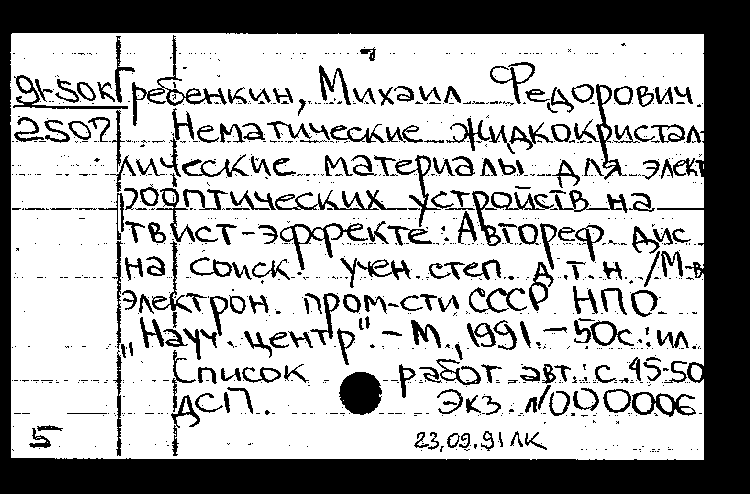 91-50к Гребенкин, Михаил Федорович.
2507 Нематические жидкокристал-
лические материалы для элект
рооптических устройств на
твист-эффекте: Автореф. дис
на соиск. учен. степ. д.т.н. /М-во
электрон. пром-сти СССР НПО
„Науч. центр". - М., 1991. - 50с.: ил.
Список работ авт.: с. 45-50
ДСП. Экз. №000006
5 23.09.91 ЛК